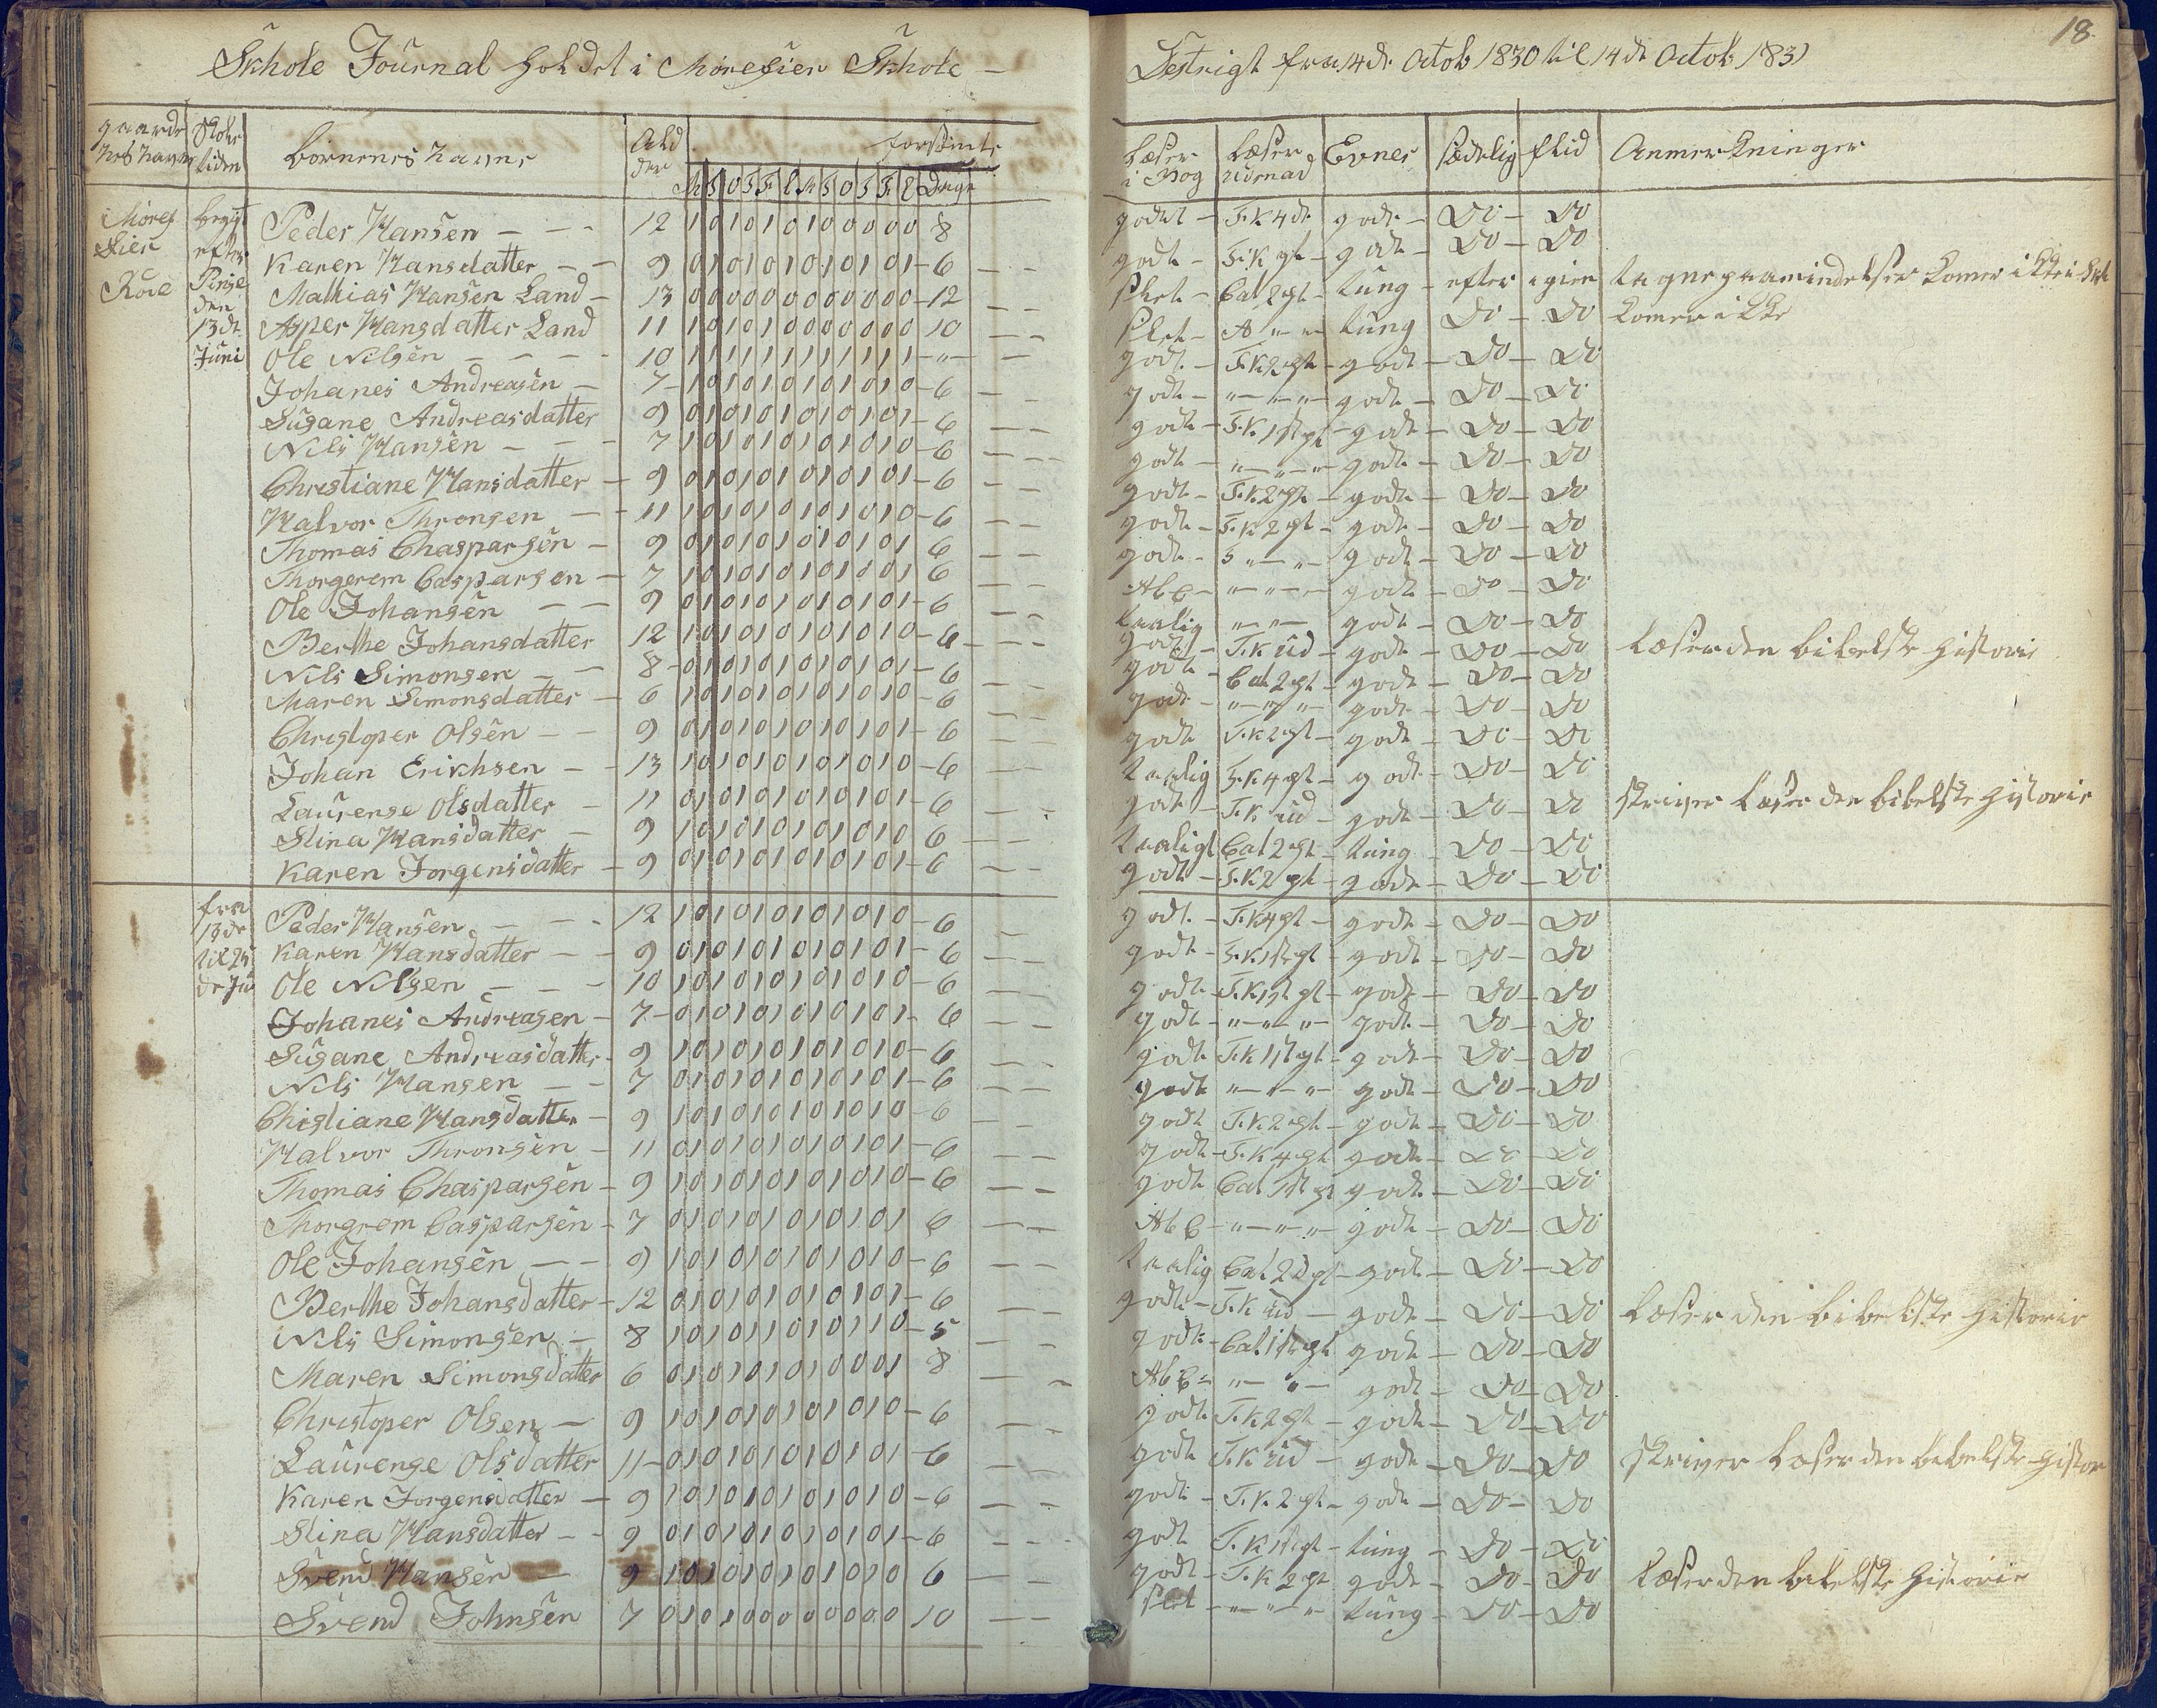 18
Skhole Journal holdet i Morefier Skhole — Destrigt fra 14de Octob 1830 til 14de Octob 1831
gaarde nes navn | Skole tiden | börnenes navne | Ald der | forsömte Dage | Læser i Bog | Læser udenad | Evner | sædelig | flid | Anmerkninger
M T O T F L M T O T F L
Moref fier
begyt efter Pinse den 13de Juni
Peder Hansen — 12 101010100000 8 godt T.K 4de godt Do Do
Karen Hansdatter — 9 010101010101 6 godt T.K gt godt Do Do
Mathias Hansen Land 13 000000000000 12 slet Cat 2 gt tung efter igien tagne paamindelser komer ikke i Skole
Asper Hansdatter Land 11 101010000000 10 slet A " " tung Do Do komer ikke
Ole Nilsen — 10 111111111111 " godt T.K 2 gt godt Do Do
Johanes Andreasen 7 101010101010 6 godt " " " godt Do Do
Susane Andreasdatter 9 010101010101 6 godt T.K 1st gt godt Do Do
Nils Hansen — 7 101010101010 6 godt " " " godt Do Do
Christiane Hansdatter 9 010101010101 6 godt T.K 2 gt godt Do Do
Halvor Thronsen 11 101010101010 6 godt T.K 2 gt godt Do Do
Thomas Chasparsen 9 010101010101 6 godt " " godt Do Do
Thorgerem Casparsen 7 6 Abc " " " godt Do Do
Ole Johansen — 9 010101010101 6 taalig " " godt Do Do
Berthe Johansdatter 12 101010101010 6 godt T.K ud godt Do Do Læser den bibelske Historie
Nils Simonsen — 8 010101010101 6 godt Cat 2 gt godt Do Do
Maren Simonsdatter 6 101010101010 6 godt " " " godt Do Do
Christoper Olsen — 9 010101010101 6 godt T.K 2 gt godt Do Do
Johan Erikhsen — 13 101010101010 6 taalig T.K 4 gt godt Do Do
Laurense Olsdatter 11 010101010101 6 godt T.K ud godt Do Do skriver Læser den bibelske Historie
Stina Hansdatter 9 101010101010 6 taaligt Cat 2 gt tung Do Do
Karen Jorgensdatter 9 010101010101 6 godt T.K 2 gt godt Do Do
fra 13de til 25 de Ju
Peder Hansen — 12 101010101010 6 godt T.K 4 gt godt Do Do
Karen Hansdatter — 9 010101010101 6 godt T.K 1st gt godt Do Do
Ole Nilsen — 10 101010101010 6 godt T.K 1st gt godt Do Do
Johanes Andreasen 7 010101010101 6 godt " " " godt Do Do
Susane Andreasdatter 9 101010101010 6 godt T.K 1st gt godt Do Do
Nils Hansen — 7 010101010101 6 godt " " " godt Do Do
Chistiane Hansdatter 9 101010101010 6 godt T.K 2 gt godt Do Do
Halvor Thronsen 11 010101010101 6 godt T.K 4 gt godt Do Do
Thomas Chasparsen 9 101010101010 6 godt Cat 1st gt godt Do Do
Thorgrem Casparsen 7 010101010101 6 Abc " " " godt Do Do
Ole Johansen — 9 101010101010 6 taalig Cat 2d gt godt Do Do
Berthe Johansdatter 12 010101010101 6 godt T.K ud godt Do Do Læser den bibelske Historie
Nils Simonsen — 8 101011010110 5 godt Cat 1st gt godt Do Do
Maren Simonsdatter 6 8 Abc " " godt Do Do
Christoper Olsen — 9 101010101010 6 godt T.K 2 gt godt Do Do
Laurense Olsdatter 11 010101010101 6 godt T.K ud godt Do Do skriver Læser den bibelske Histor
Karen Jorgensdatter 9 101010101010 6 godt T.K. 2 gt godt Do Do
Stina Hansdatter 9 010101010101 6 godt T.K 1st gt tung Do Do
Svend Hansen 9 101010101010 6 godt T.K 2 gt godt Do Do Læser den bibelske Historie
Svend Johnsen 7 010100000000 10 slet " " " tung Do Do